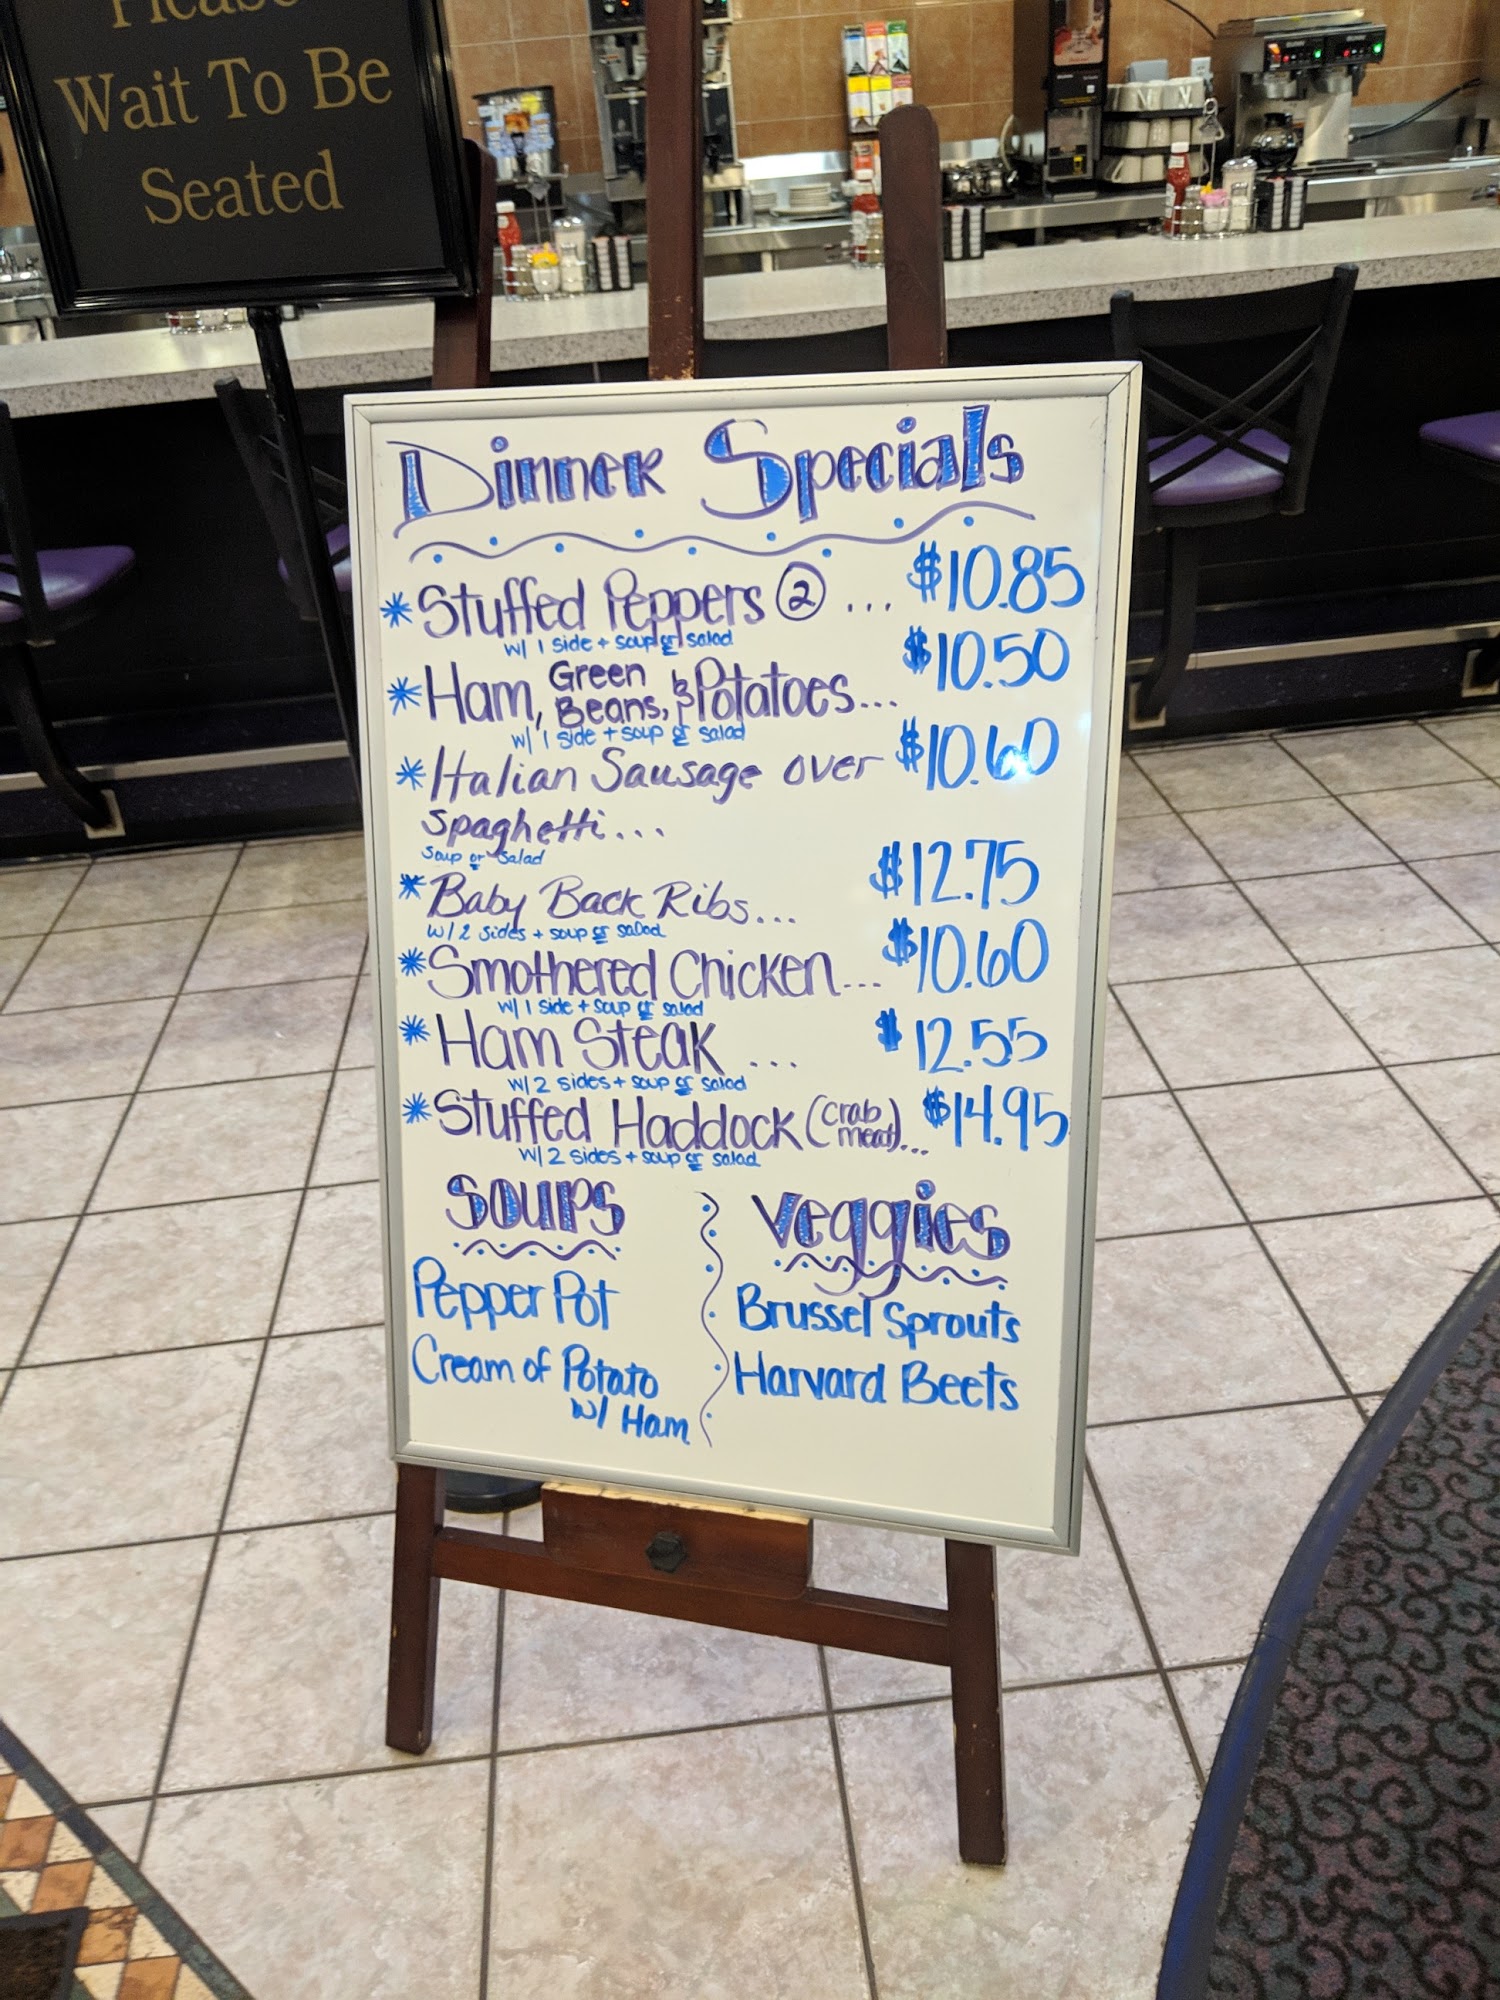 Please
Wait To Be
Seated
Dinner Specials
* Stuffed Peppers ② ... $10.85
w/ 1 side + soup or salad
* Ham, Green Beans, & Potatoes... $10.50
w/ 1 side + soup or salad
* Italian Sausage over $10.60
spaghetti...
soup or salad
* Baby Back Ribs... $12.75
w/ 2 sides + soup or salad
* Smothered Chicken... $10.60
w/ 1 side + soup or salad
* Ham Steak ... $12.55
w/ 2 sides + soup or salad
* Stuffed Haddock (crab meat)... $14.95
w/ 2 sides + soup or salad
Soups
Pepper Pot
Cream of Potato
w/ Ham
Veggies
Brussel Sprouts
Harvard Beets